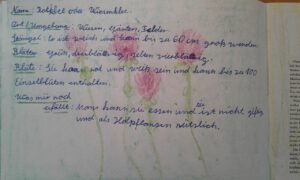 Name: Rotklee oder Wiesenklee
Ort / Umgebung: Wiesen, Gärten, Felder
Stängel: Er ist weich und kann bis zu 60 cm groß werden.
Blätter: grün, dreiblättrig, selten vierblättrig.
Blüte: Sie kann rot und weiß sein und kann bis zu 100
Einzelblüten enthalten.
Was mir noch
einfällt: Man kann sie essen und sie ist nicht giftig
und als Heilpflanzen nützlich.